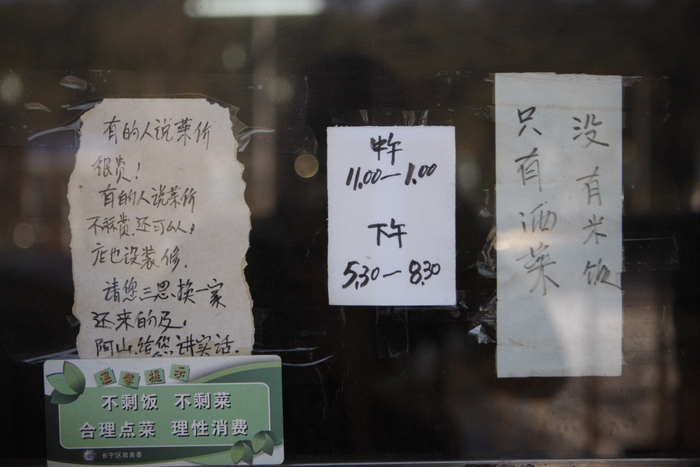 有的人说菜价
很贵!
有的人说菜价
不称贵还可以,
店也没装修.
请您三思换一家
还来的及,
阿山给您讲实话.
温馨提示
不剩饭 不剩菜
合理点菜 理性消费
长宁区商务委
中午
11.00—1.00
下午
5.30—8.30
没有米饭
只有酒菜